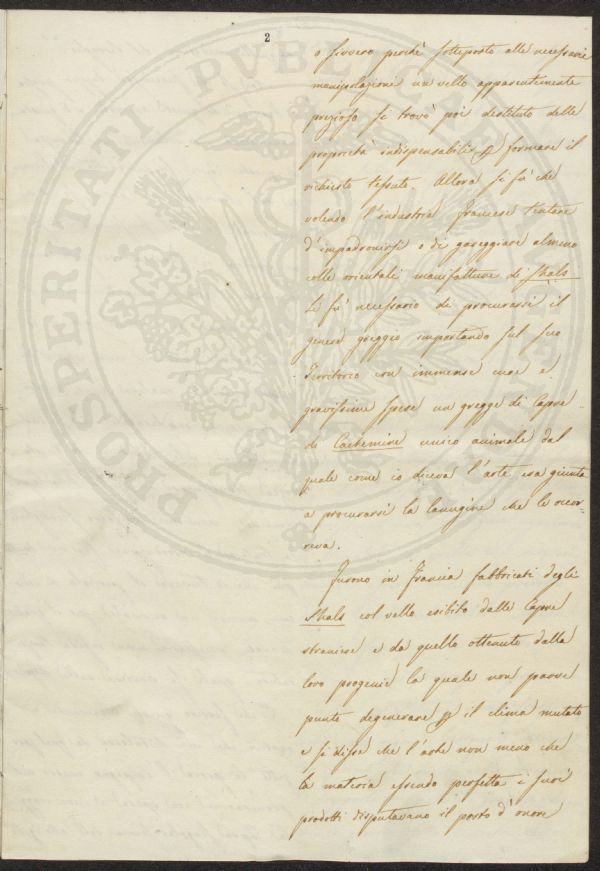 2
o sivvero perchè sottoposto alle necessarie
manipolazioni un vello apparentemente
prezioso si trovò poi destituto delle
proprietà indispensabili p formare il
richiesto tessuto. Allora si fù che
volendo l'industria francese tentare
d'impadronirsi o di gareggiare almeno
colle orientali manifatture di Shals
Le fu necessario di procurarsi il
genere greggio importando sul suo
Territorio con immense cure e
gravissime spese un gregge di Capre
di Cachemire unico animale dal
quale come io diceva l'arte era giunta
a procurarsi la lanugine che le occor-
reva.
Furono in Francia fabbricati degli
Shals col vello esibito dalle Capre
straniere e da quello ottenuto dalla
loro progenie la quale non parve
punto degenerare p il clima mutato
e si disse che l'arte non meno che
la materia essendo perfetta i suoi
prodotti disputavano il posto d'onore
PROSPERITATI PUBLICAE